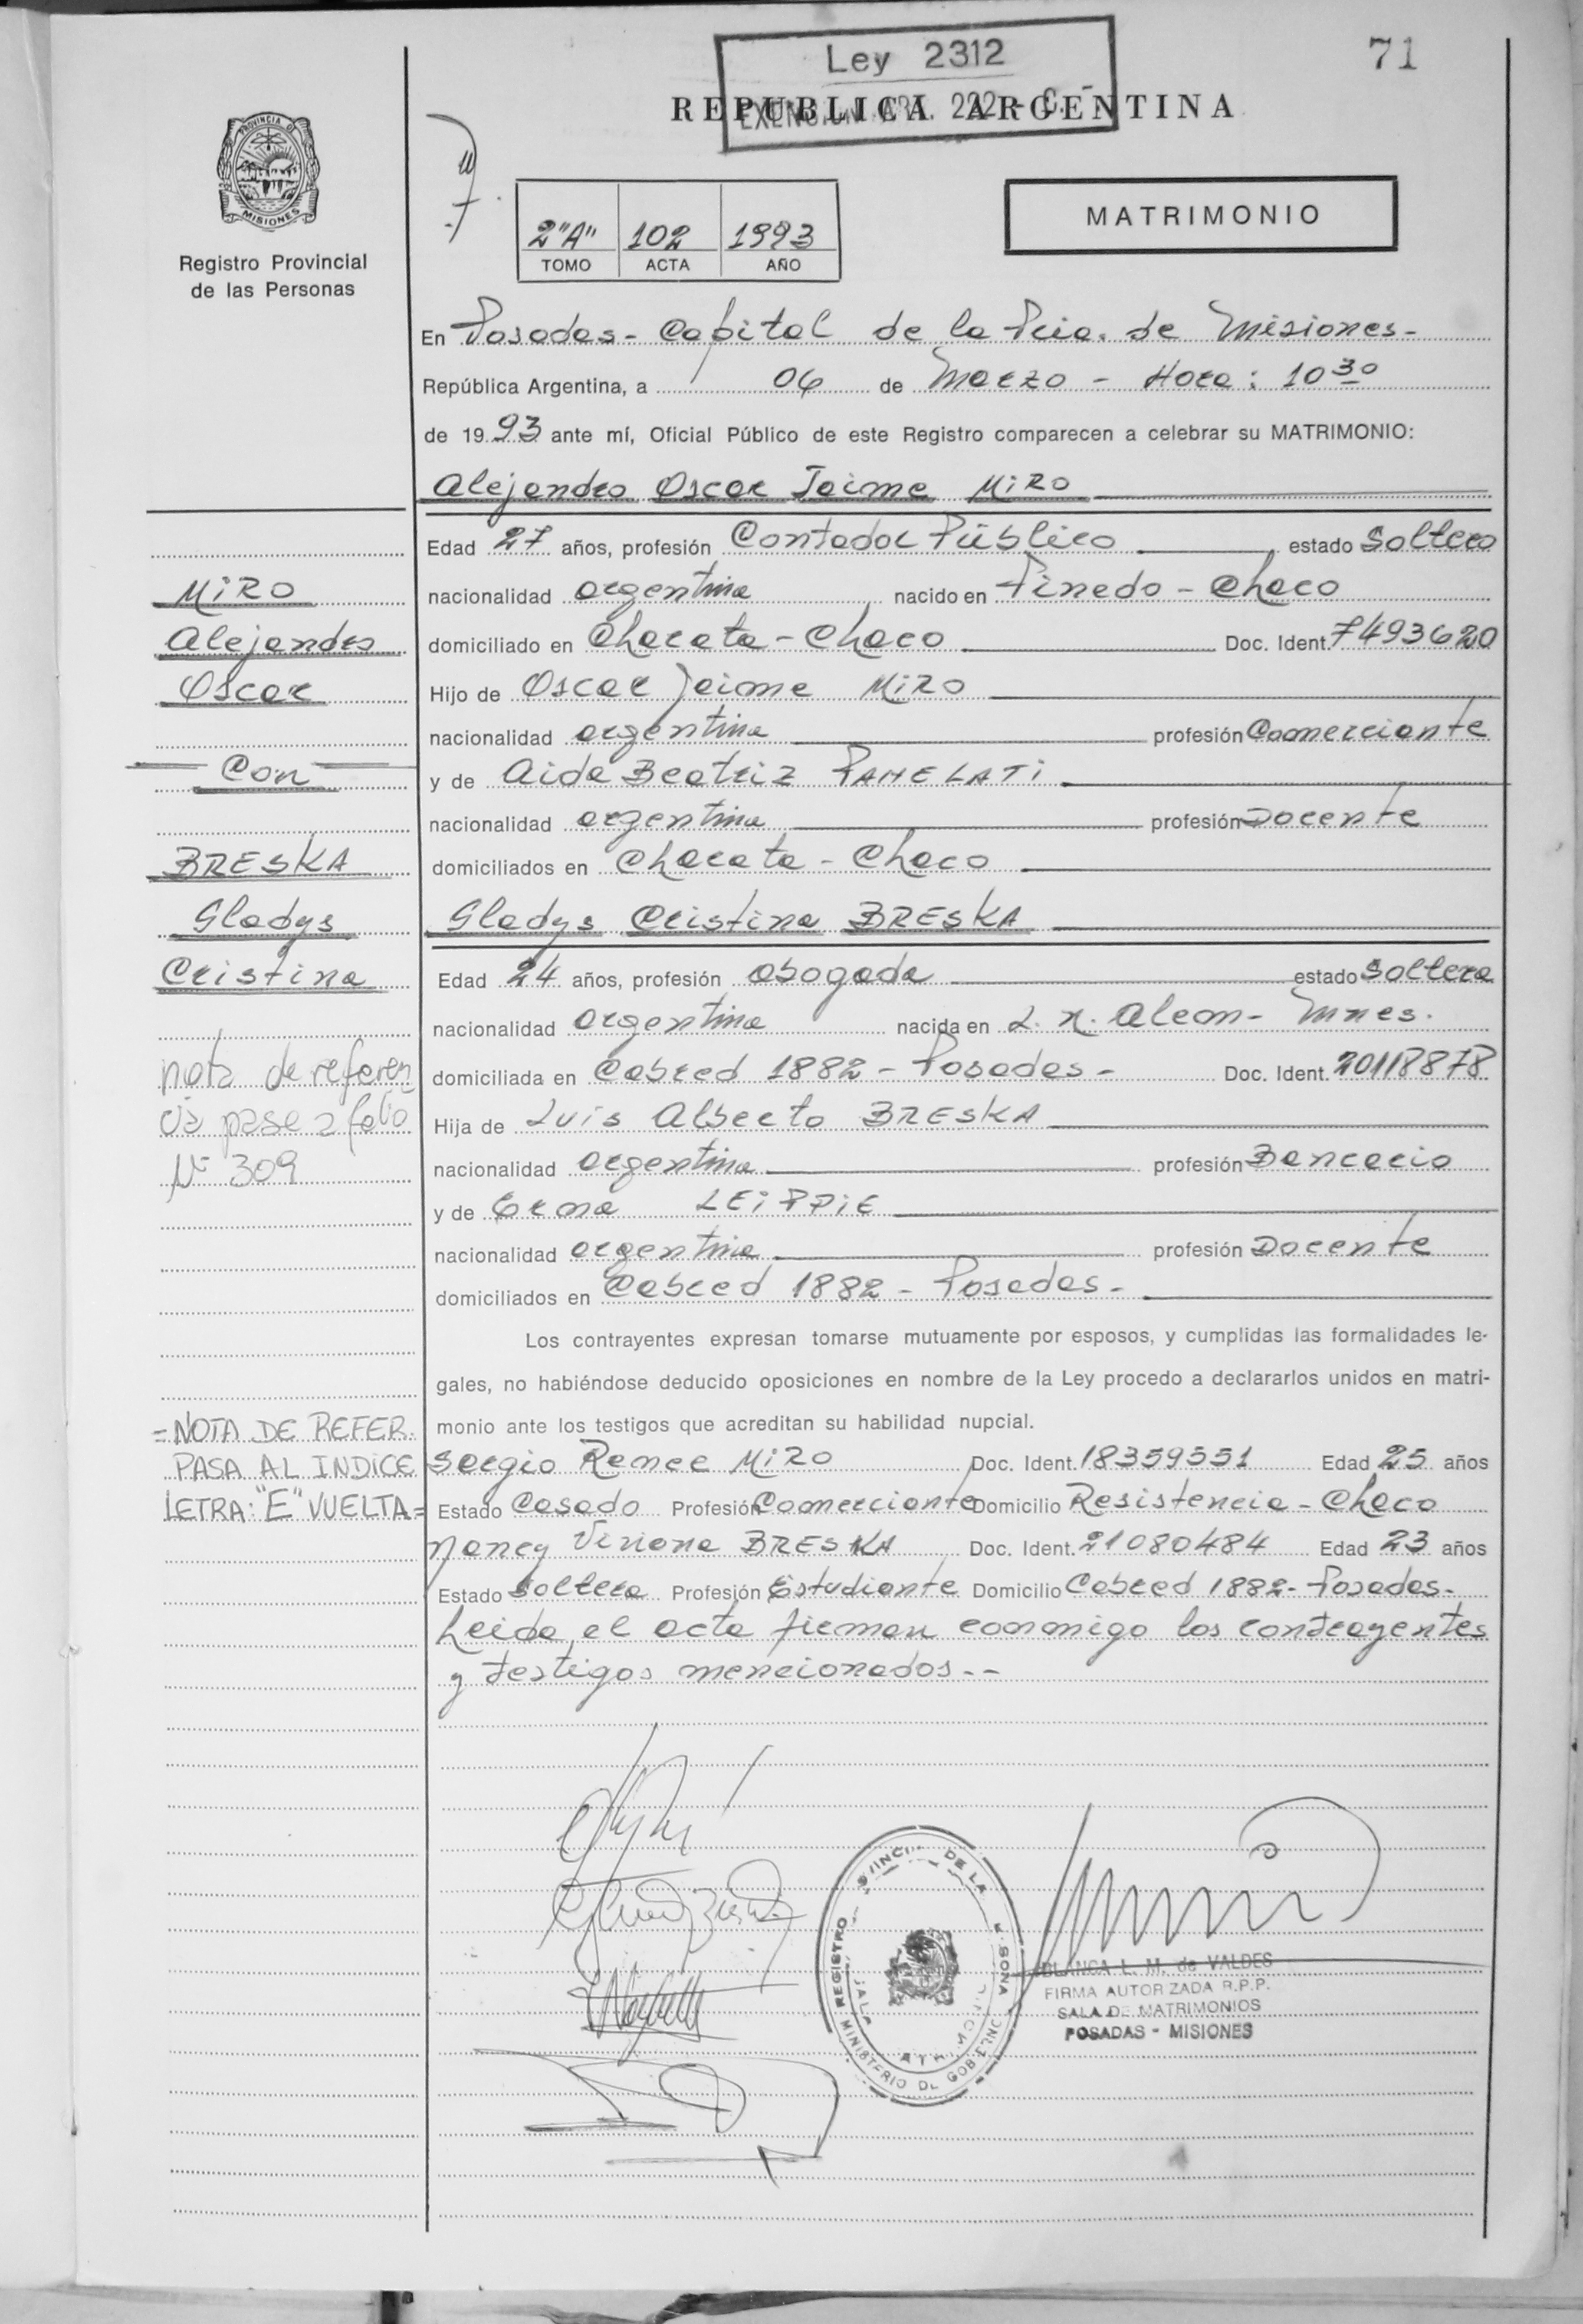 71
Ley 2312
REPUBLICA ARGENTINA
PROVINCIA D
MISIONES
Registro Provincial
de las Personas
2"A" 102 1993
TOMO ACTA AÑO
MATRIMONIO
En Posadas - Capital de la Pcia. de Misiones-
República Argentina, a 06 de Marzo - Hora: 10 30
de 1993 ante mí, Oficial Público de este Registro comparecen a celebrar su MATRIMONIO:
Alejandro Oscar Jaime MiRO
Edad 27 años, profesión Contador Público estado Soltero
nacionalidad argentina nacido en Pinedo - Chaco
domiciliado en Charata - Chaco Doc. Ident. 7493620
Hijo de Oscar Jaime MiRO
nacionalidad argentina profesión Comerciante
y de Aida Beatriz PAMELATi
nacionalidad argentina profesión Docente
domiciliados en Charata - Chaco
Gladys Cristina BRESKA
Edad 24 años, profesión abogada estado Soltera
nacionalidad argentina nacida en L. N. Alem - Mnes.
domiciliada en Cabred 1882 - Posadas - Doc. Ident. 20118878
Hija de Luis Alberto BRESKA
nacionalidad argentina profesión Bancario
y de Erma LEiPPiE
nacionalidad argentina profesión Docente
domiciliados en Cabred 1882 - Posadas -
Los contrayentes expresan tomarse mutuamente por esposos, y cumplidas las formalidades le-
gales, no habiéndose deducido oposiciones en nombre de la Ley procedo a declararlos unidos en matri-
monio ante los testigos que acreditan su habilidad nupcial.
Sergio Renee MiRO Doc. Ident. 18359551 Edad 25 años
Estado Casado Profesión Comerciante Domicilio Resistencia - Chaco
Nancy Viviana BRESKA Doc. Ident. 21080484 Edad 23 años
Estado Soltera Profesión Estudiante Domicilio Cabred 1882 - Posadas -
Leida el acta firman conmigo los contrayentes
y testigos mencionados --
MiRO
Alejandro
Oscar
Con
BRESKA
Gladys
Cristina
nota de referen
cia pase a folio
Nº 309
= NOTA DE REFER.
PASA AL INDICE
LETRA: "E" VUELTA =
REGISTRO DE LA
MINISTERIO DE GOBIERNO
BLANCA L. M. de VALDES
FIRMA AUTORIZADA R.P.P.
SALA DE MATRIMONIOS
POSADAS - MISIONES